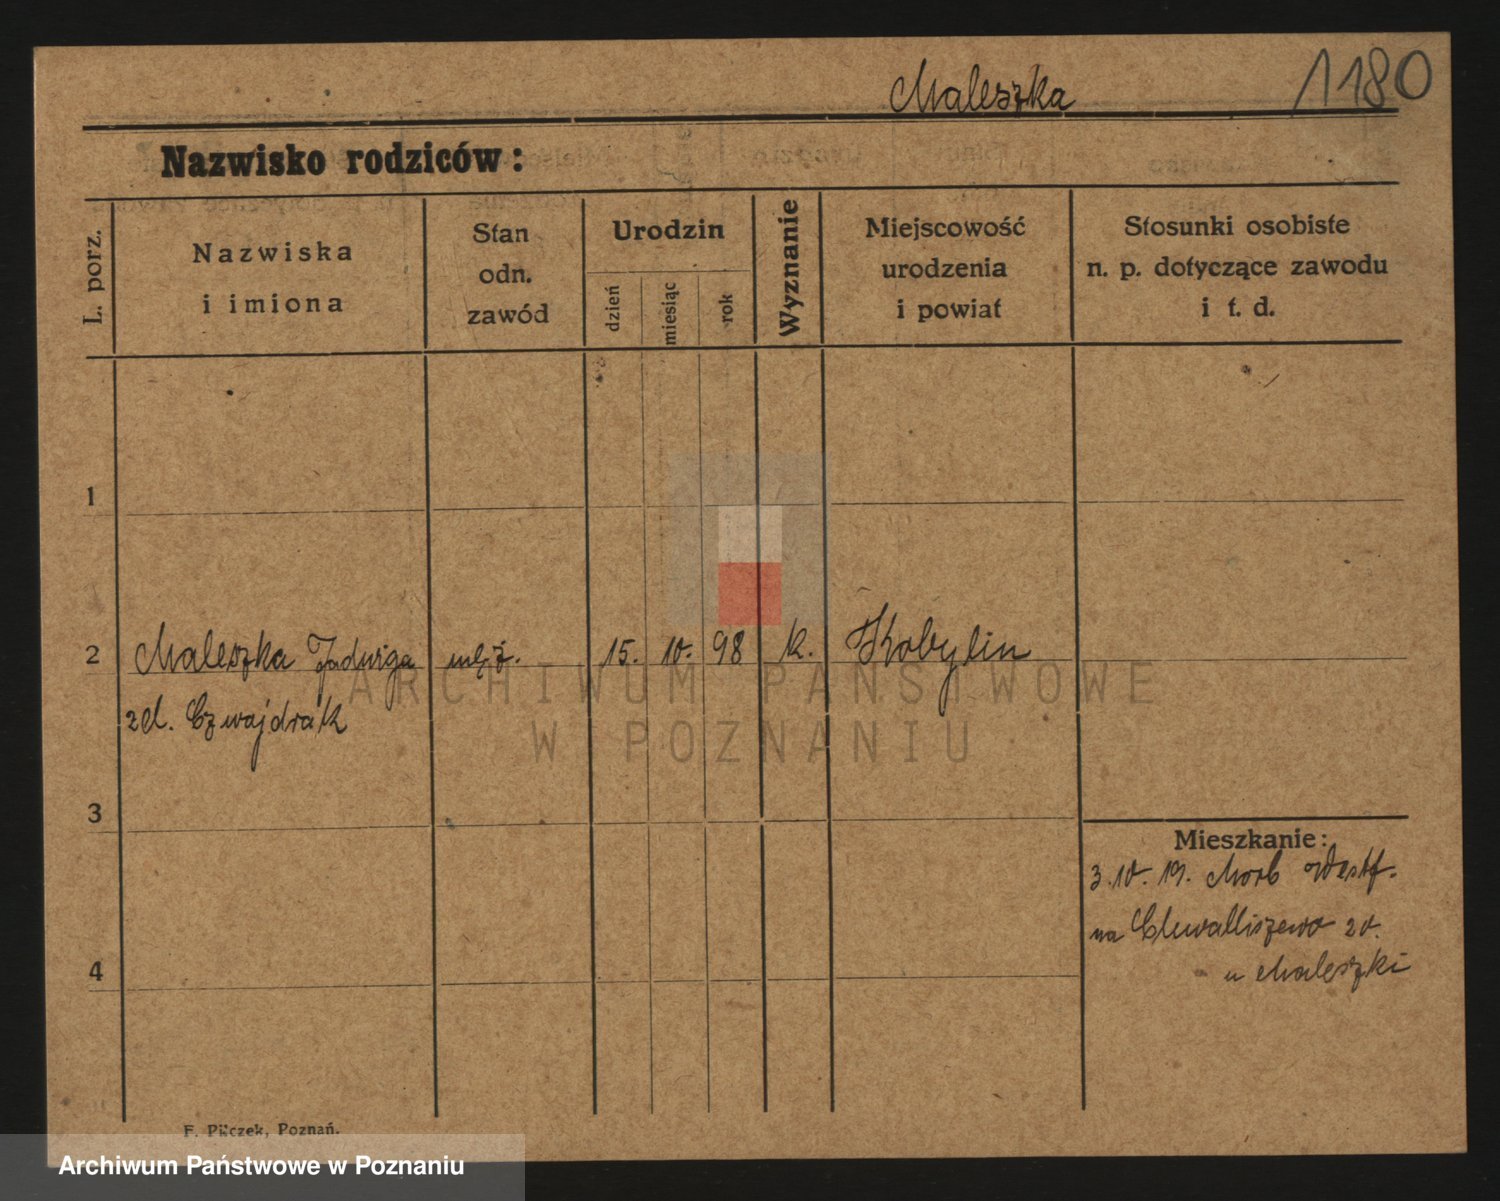 Maleszka
1180
Nazwisko rodziców:
L. porz.
Nazwiska
i imiona
Stan
odn.
zawód
Urodzin
dzień
miesiąc
rok
Wyznanie
Miejscowość
urodzenia
i powiat
Stosunki osobiste
n. p. dotyczące zawodu
i t. d.
1
2
Maleszka Jadwiga
15. 10. 98 k. Kobylin
Czwajdrak
3
Mieszkanie:
3.10.19. Westf.
na Chwaliszewo 20.
u Maleszki
4
F. Pilczek, Poznań.
ARCHIWUM PAŃSTWOWE
W POZNANIU
Archiwum Państwowe w Poznaniu